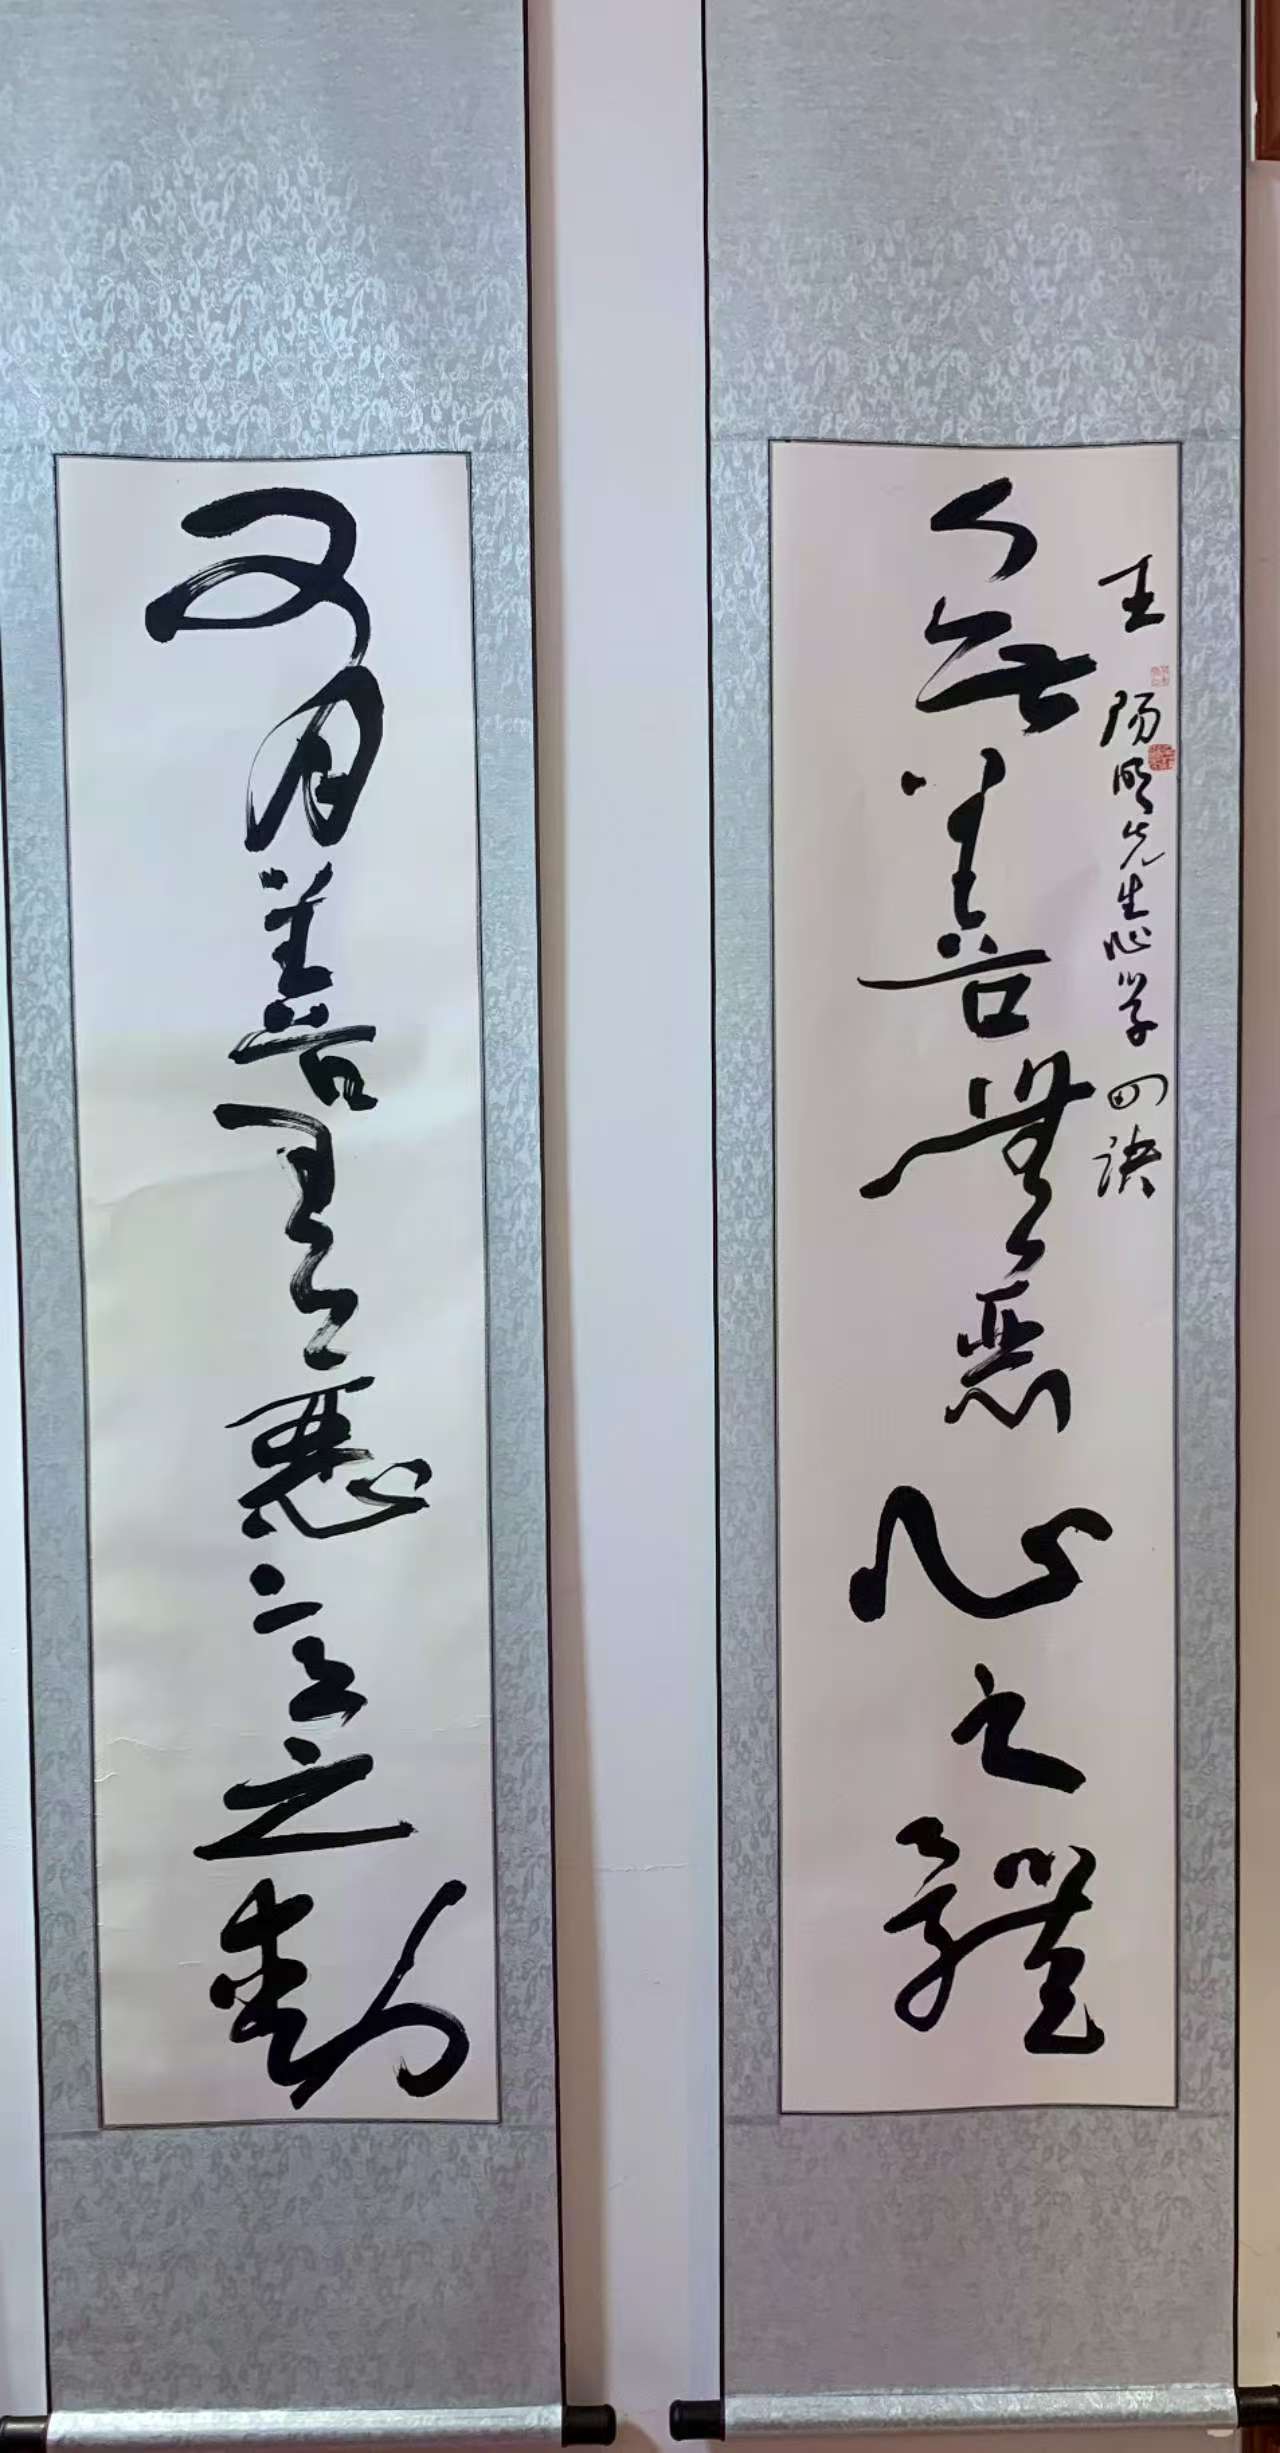 王陽明先生心学四訣
無善無惡心之體
有善有惡意之動